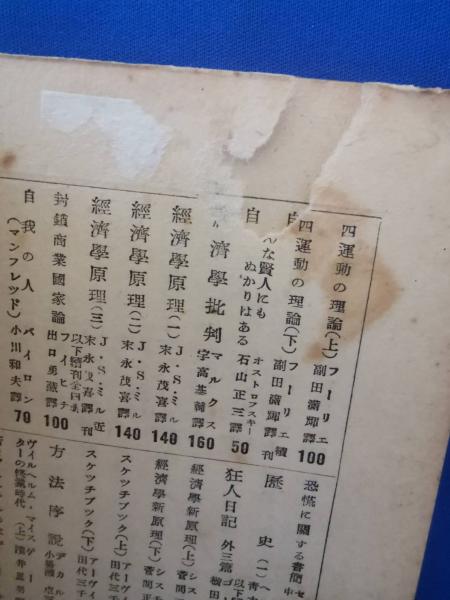 四運動の理論(上) フーリエ 副田満輝譯 100
四運動の理論(下) フーリエ 副田満輝譯 續刊
な賢人にもぬかりはある オストロフスキー 石山正三譯 50
濟學批判 マルクス 宇高基輔譯 160
經濟學原理(一) J・S・ミル 末永茂喜譯 140
經濟學原理(二) J・S・ミル 末永茂喜譯 140
經濟學原理(三) J・S・ミル 末永茂喜譯 以下續刊全四 近刊
封鎖商業國家論 フイヒテ 出口勇藏譯 100
自我の人 (マンフレッド) バイロン 小川和夫譯 70
恐慌に關する書簡
歷史(一)
狂人日記 外三篇
經濟學新原理(上) シス 菅間正
經濟學新原理(下) シス 菅間正
スケツチブツク(上) アーヴィ 田代三千
スケツチブツク(下) アーヴィ 田代三千
方法序説 デカル
ヴィルヘルム・マイスターの修業時代(上)